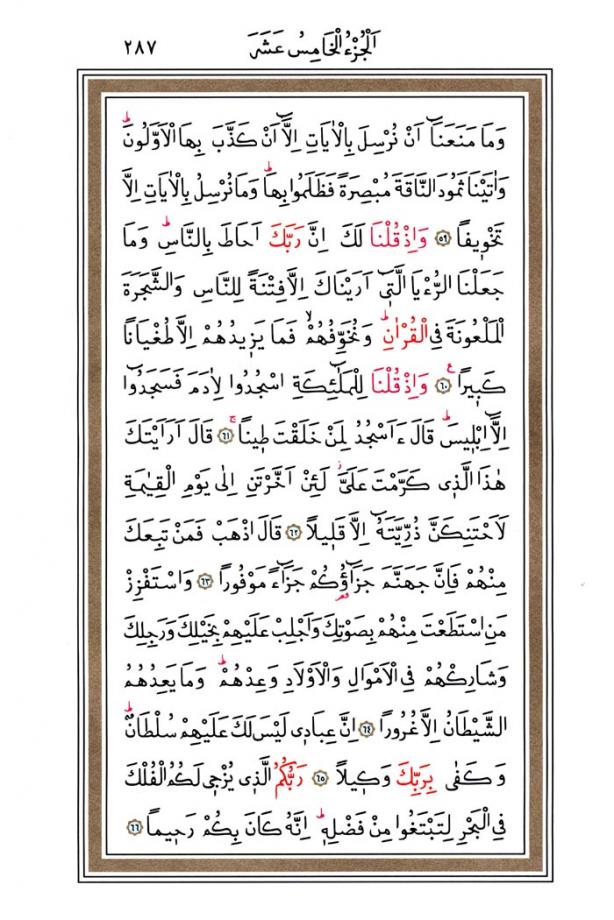 اَلْجُزْءُ الْخَامِسُ عَشَرَ ٢٨٧
وَمَا مَنَعَنَٓا اَنْ نُرْسِلَ بِالْاٰيَاتِ اِلَّٓا اَنْ كَذَّبَ بِهَا الْاَوَّلُونَۜ
وَاٰتَيْنَا ثَمُودَ النَّاقَةَ مُبْصِرَةً فَظَلَمُوا بِهَاۜ وَمَا نُرْسِلُ بِالْاٰيَاتِ اِلَّا
تَخْوِيفاً ﴿٥٩﴾ وَاِذْ قُلْنَا لَكَ اِنَّ رَبَّكَ اَحَاطَ بِالنَّاسِۜ وَمَا
جَعَلْنَا الرُّءْيَا الَّتٖٓي اَرَيْنَاكَ اِلَّا فِتْنَةً لِلنَّاسِ وَالشَّجَرَةَ
الْمَلْعُونَةَ فِي الْقُرْاٰنِۜ وَنُخَوِّفُهُمْۙ فَمَا يَزٖيدُهُمْ اِلَّا طُغْيَاناً
كَبٖيراً۟ ﴿٦٠﴾ وَاِذْ قُلْنَا لِلْمَلٰٓئِكَةِ اسْجُدُوا لِاٰدَمَ فَسَجَدُٓوا
اِلَّٓا اِبْلٖيسَۜ قَالَ ءَاَسْجُدُ لِمَنْ خَلَقْتَ طٖيناًۚ ﴿٦١﴾ قَالَ اَرَاَيْتَكَ
هٰذَا الَّذٖي كَرَّمْتَ عَلَيَّؗ لَئِنْ اَخَّرْتَنِ اِلٰى يَوْمِ الْقِيٰمَةِ
لَاَحْتَنِكَنَّ ذُرِّيَّتَهُٓ اِلَّا قَلٖيلاً ﴿٦٢﴾ قَالَ اذْهَبْ فَمَنْ تَبِعَكَ
مِنْهُمْ فَاِنَّ جَهَنَّمَ جَزَٓاؤُ۬كُمْ جَزَٓاءً مَوْفُوراً ﴿٦٣﴾ وَاسْتَفْزِزْ
مَنِ اسْتَطَعْتَ مِنْهُمْ بِصَوْتِكَ وَاَجْلِبْ عَلَيْهِمْ بِخَيْلِكَ وَرَجِلِكَ
وَشَارِكْهُمْ فِي الْاَمْوَالِ وَالْاَوْلَادِ وَعِدْهُمْۜ وَمَا يَعِدُهُمُ
الشَّيْطَانُ اِلَّا غُرُوراً ﴿٦٤﴾ اِنَّ عِبَادٖي لَيْسَ لَكَ عَلَيْهِمْ سُلْطَانٌۜ
وَكَفٰى بِرَبِّكَ وَكٖيلاً ﴿٦٥﴾ رَبُّكُمُ الَّذٖي يُزْجٖي لَكُمُ الْفُلْكَ
فِي الْبَحْرِ لِتَبْتَغُوا مِنْ فَضْلِهٖۜ اِنَّهُ كَانَ بِكُمْ رَحٖيماً ﴿٦٦﴾